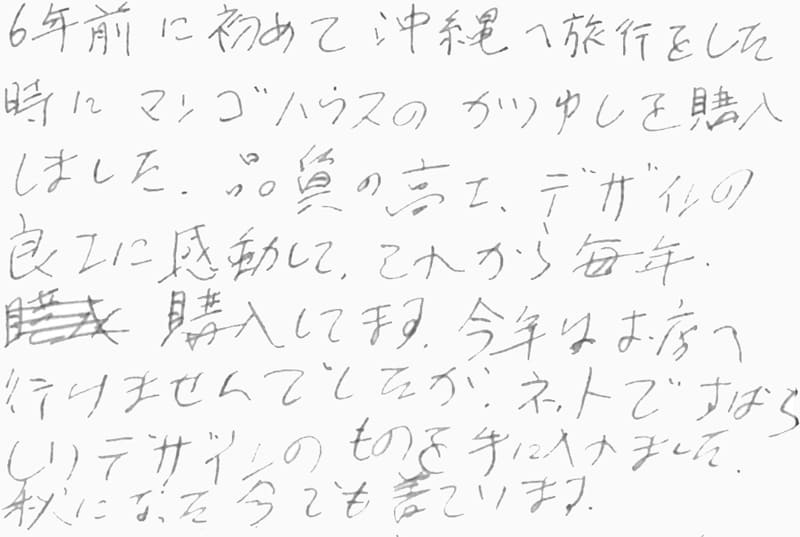 6年前に初めて沖縄へ旅行をした
時にマンゴハウスのかりゆしを購入
しました。品質の高さ、デザインの
良さに感動して、これから毎年、
購入してます。今年はお店へ
行けませんでしたが、ネットですばら
しいデザインのものを手に入れました。
秋になった今でも着ています。